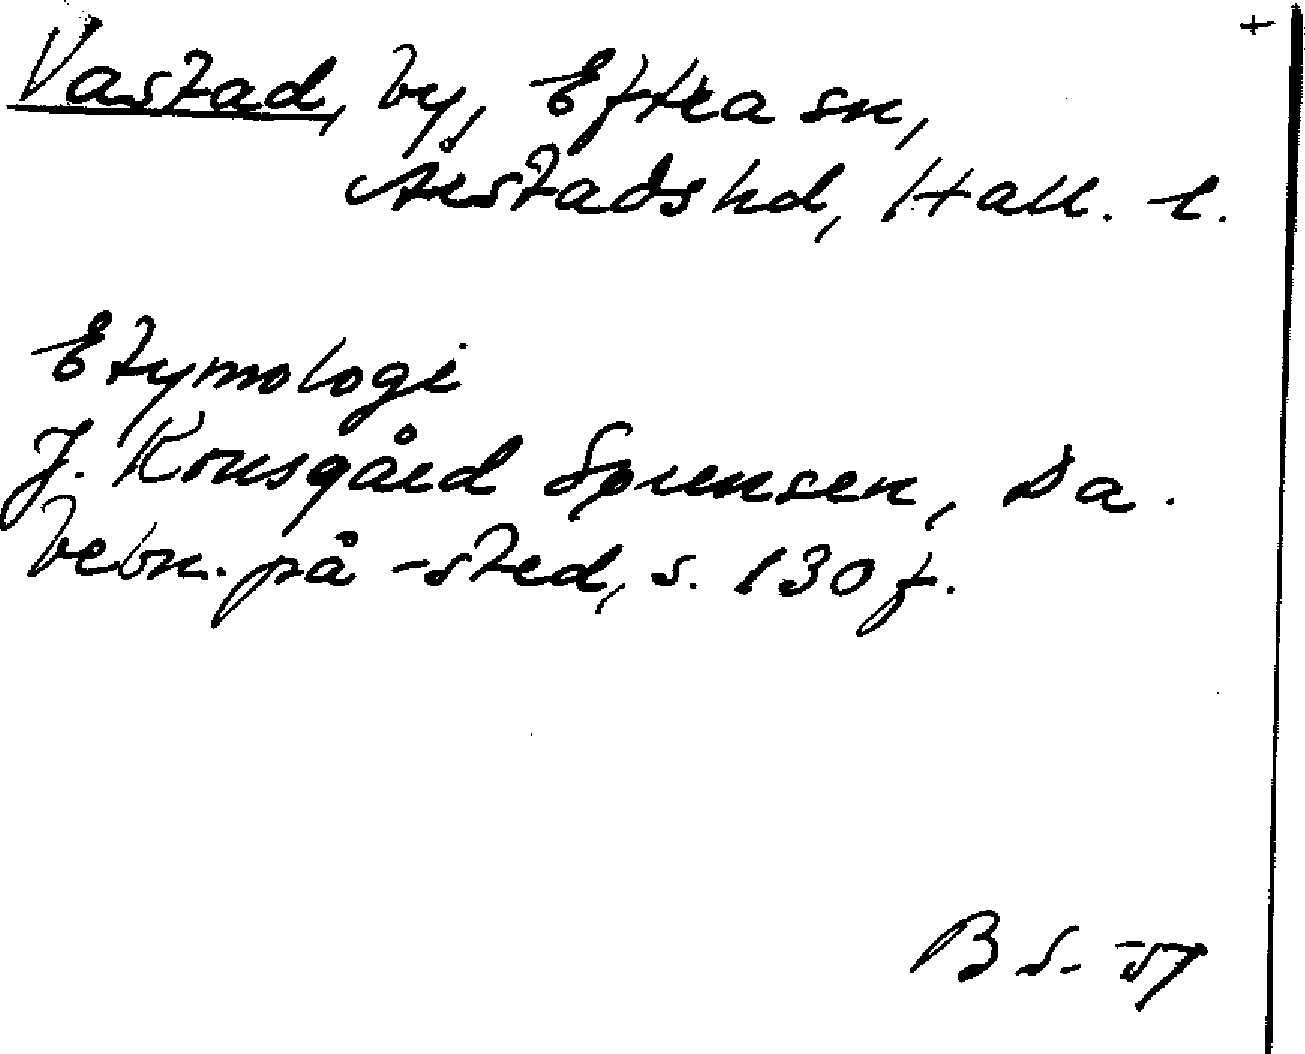 +
Vastad, by, Eftra sn,
Årstads hd, Hall. l.
Etymologi
J. Kousgård Sørensen, Da.
bebn. på -sted, s. 130 f.
BS-57